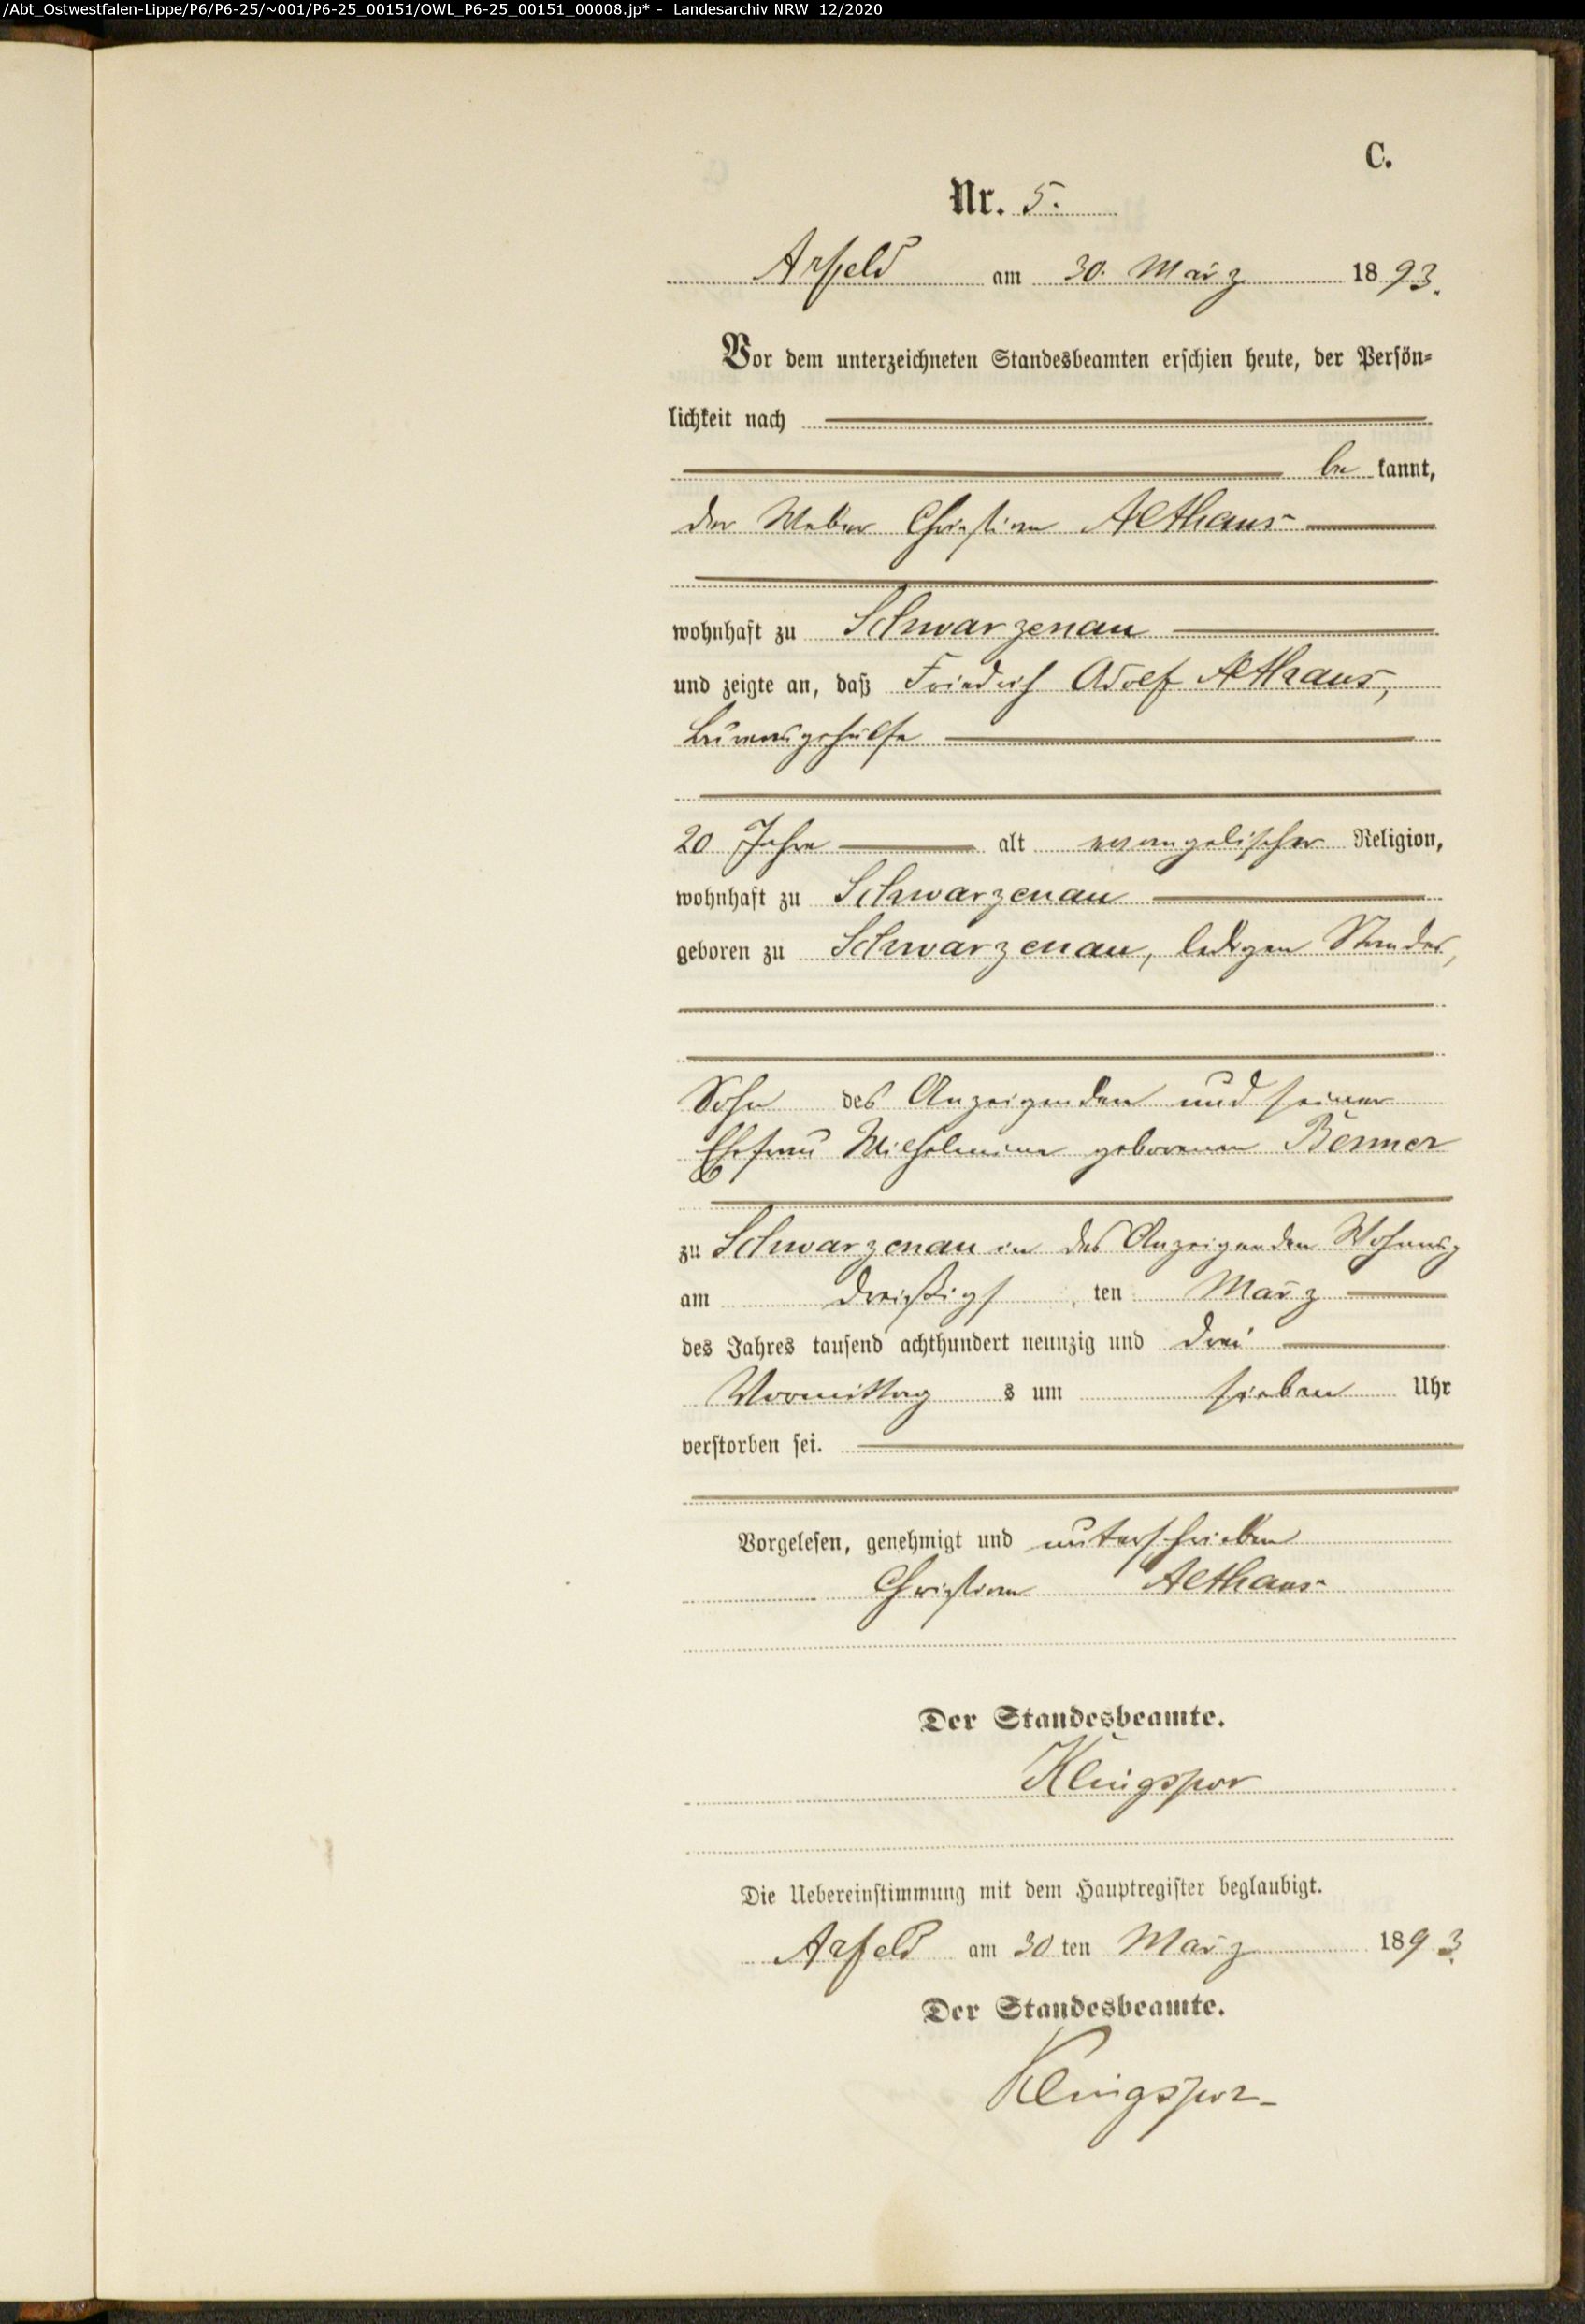 /Abt_Ostwestfalen-Lippe/P6/P6-25/~001/P6-25_00151/OWL_P6-25_00151_00008.jp* - Landesarchiv NRW 12/2020
C.
Nr. 5.
Arfeld am 30. März 1893.
Vor dem unterzeichneten Standesbeamten erschien heute, der Persön-
lichkeit nach
be kannt,
der Weber Christian Althaus
wohnhaft zu Schwarzenau
und zeigte an, daß Friedrich Adolf Althaus,
Büreaugehülfe
20 Jahre alt evangelischer Religion,
wohnhaft zu Schwarzenau
geboren zu Schwarzenau, ledigen Standes,
Sohn des Anzeigenden und seiner
Ehefrau Wilhelmine geborenen Benner
zu Schwarzenau in des Anzeigenden Wohnung
am dreißigsten März
des Jahres tausend achthundert neunzig und drei
Vormittags um sieben Uhr
verstorben sei.
Vorgelesen, genehmigt und unterschrieben
Christian Althaus
Der Standesbeamte.
Klingspor
Die Uebereinstimmung mit dem Hauptregister beglaubigt.
Arfeld am 30 ten März 1893.
Der Standesbeamte.
Klingspor